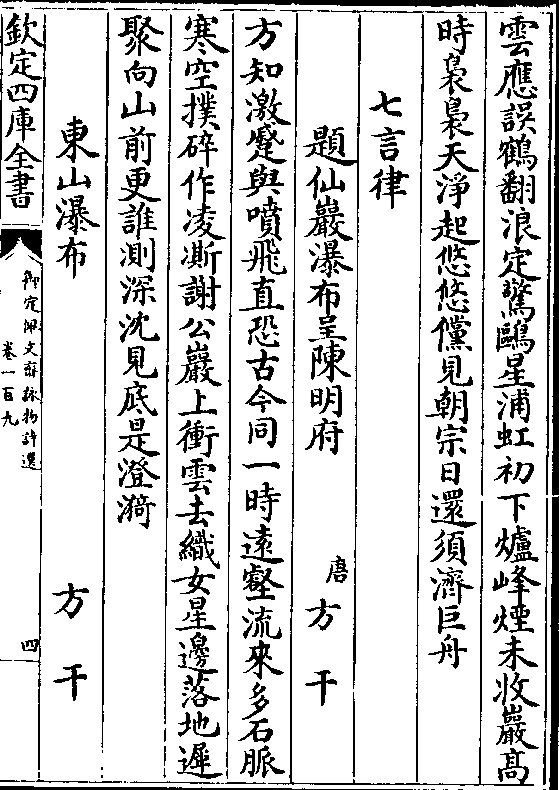 雲應誤鶴翻浪定驚鷗星浦虹初下爐峰煙未收巖高
時裊裊天淨起悠悠儻見朝宗日還須濟巨舟
七言律
題仙巖瀑布呈陳明府 唐 方干
方知激蹙與噴飛直恐古今同一時遠壑流來多石脈
寒空撲碎作凌澌謝公巖上衝雲去織女星邊落地遲
聚向山前更誰測深沈見底是澄漪
東山瀑布 方干
欽定四庫全書
御定佩文齋詠物詩選
卷一百九
四